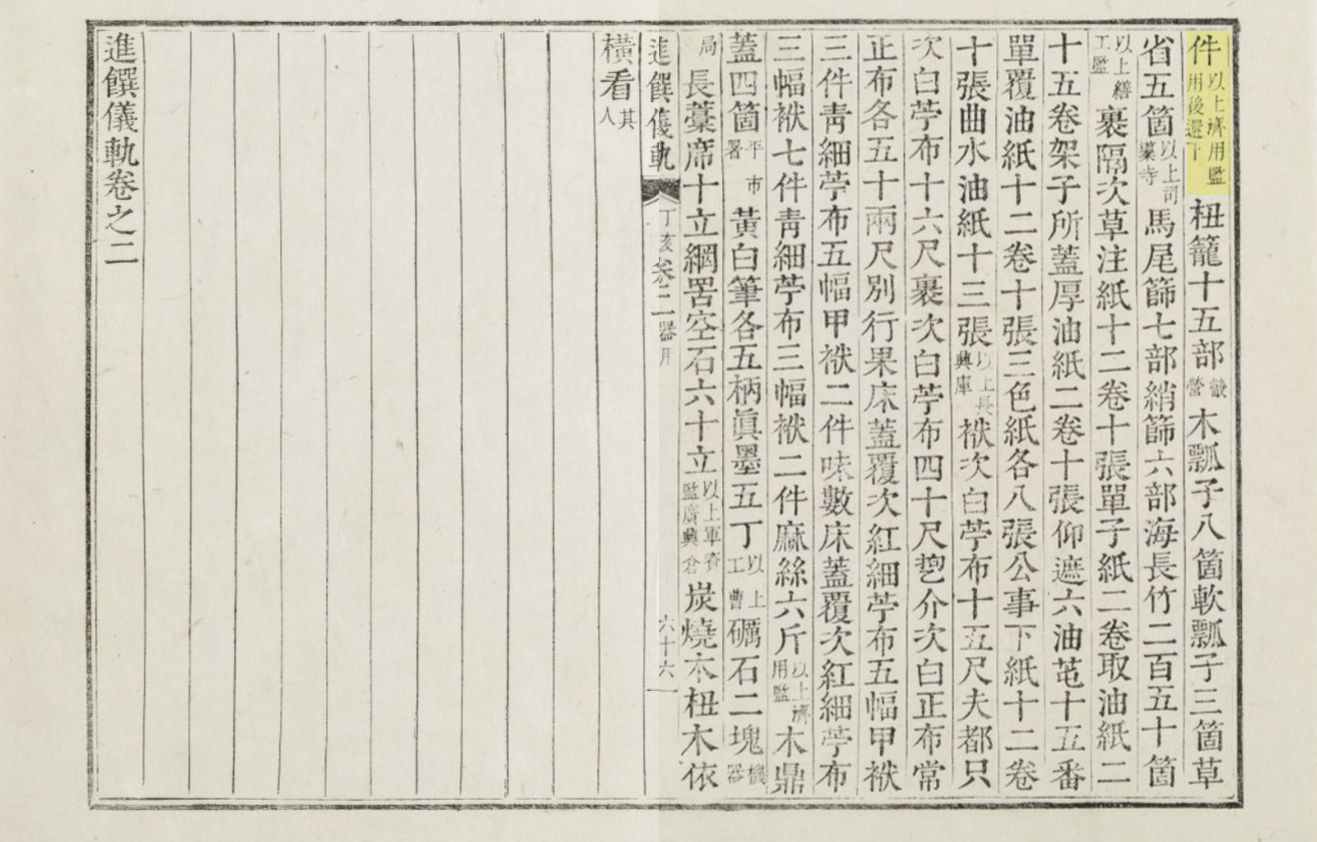 件以上濟用監用後還下杻籠十五部戱營木瓢子八箇軟瓢子三箇草
省五箇以上司䆃寺馬尾篩七部綃篩六部海長竹二百五十箇
以上繕工監裹隔次草注紙十二卷十張單子紙二卷取油紙二
十五卷架子所蓋厚油紙二卷十張仰遮六油芚十五番
單覆油紙十二卷十張三色紙各八張公事下紙十二卷
十張曲水油紙十三張以上長興庫袱次白苧布十五尺夫都只
次白苧布十六尺裹次白苧布四十尺乫介次白正布常
正布各五十兩尺別行果床蓋覆次紅細苧布五幅甲袱
三件靑細苧布五幅甲袱二件味數床蓋覆次紅細苧布
三幅袱七件靑細苧布三幅袱二件麻絲六斤以上濟用監木鼎
蓋四箇平市署黃白筆各五柄眞墨五丁以上工曹礪石二塊機器
局長藁席十立網罟空石六十立以上軍資監廣興倉炭燒木杻木依
進饌儀軌 丁亥 卷二 器用 六十六
橫看其人
進饌儀軌卷之二